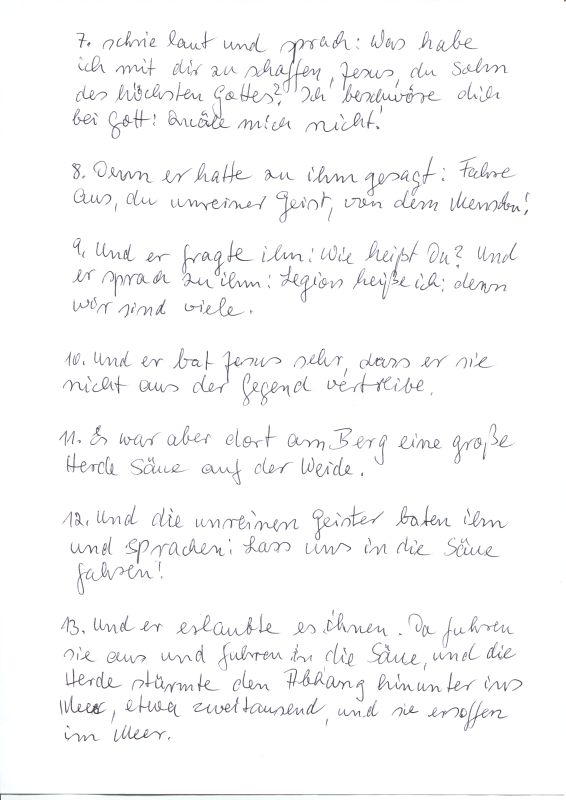 7. schrie laut und sprach: Was habe
ich mit dir zu schaffen, Jesus, du Sohn
des höchsten Gottes? Ich beschwöre dich
bei Gott: Quäle mich nicht!
8. Denn er hatte zu ihm gesagt: Fahre
aus, du unreiner Geist, von dem Menschen!
9. Und er fragte ihn: Wie heißt Du? Und
er sprach zu ihm: Legion heiße ich; denn
wir sind viele.
10. Und er bat Jesus sehr, dass er sie
nicht aus der Gegend vertreibe.
11. Es war aber dort am Berg eine große
Herde Säue auf der Weide.
12. Und die unreinen Geister baten ihn
und sprachen: Lass uns in die Säue
fahren!
13. Und er erlaubte es ihnen. Da fuhren
sie aus und fuhren in die Säue, und die
Herde stürmte den Abhang hinunter ins
Meer, etwa zweitausend, und sie ersoffen
im Meer.